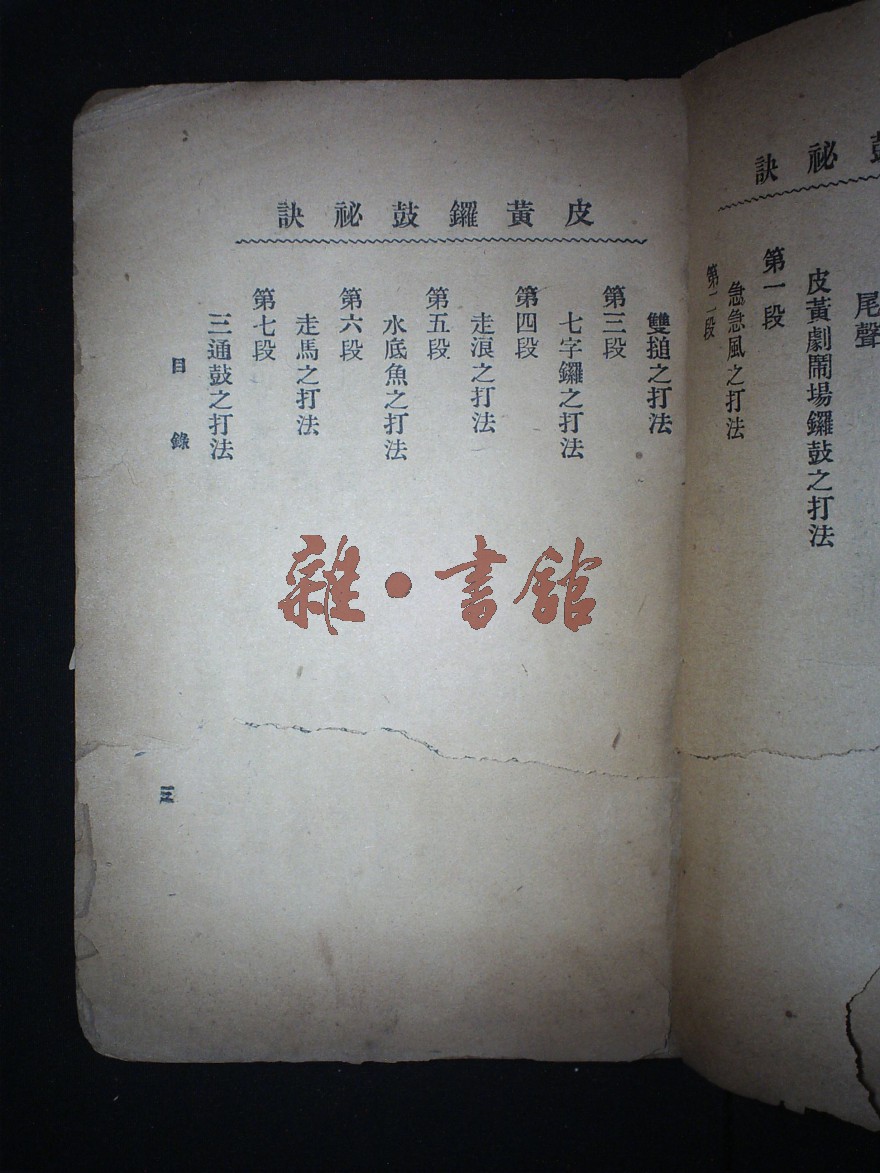 祕訣
尾聲
皮黃劇鬧場鑼鼓之打法
第一段
急急風之打法
第二段
皮黃鑼鼓祕訣
雙搥之打法
第三段
七字鑼之打法
第四段
走浪之打法
第五段
水底魚之打法
第六段
走馬之打法
第七段
三通鼓之打法
目錄
三
雜·書館